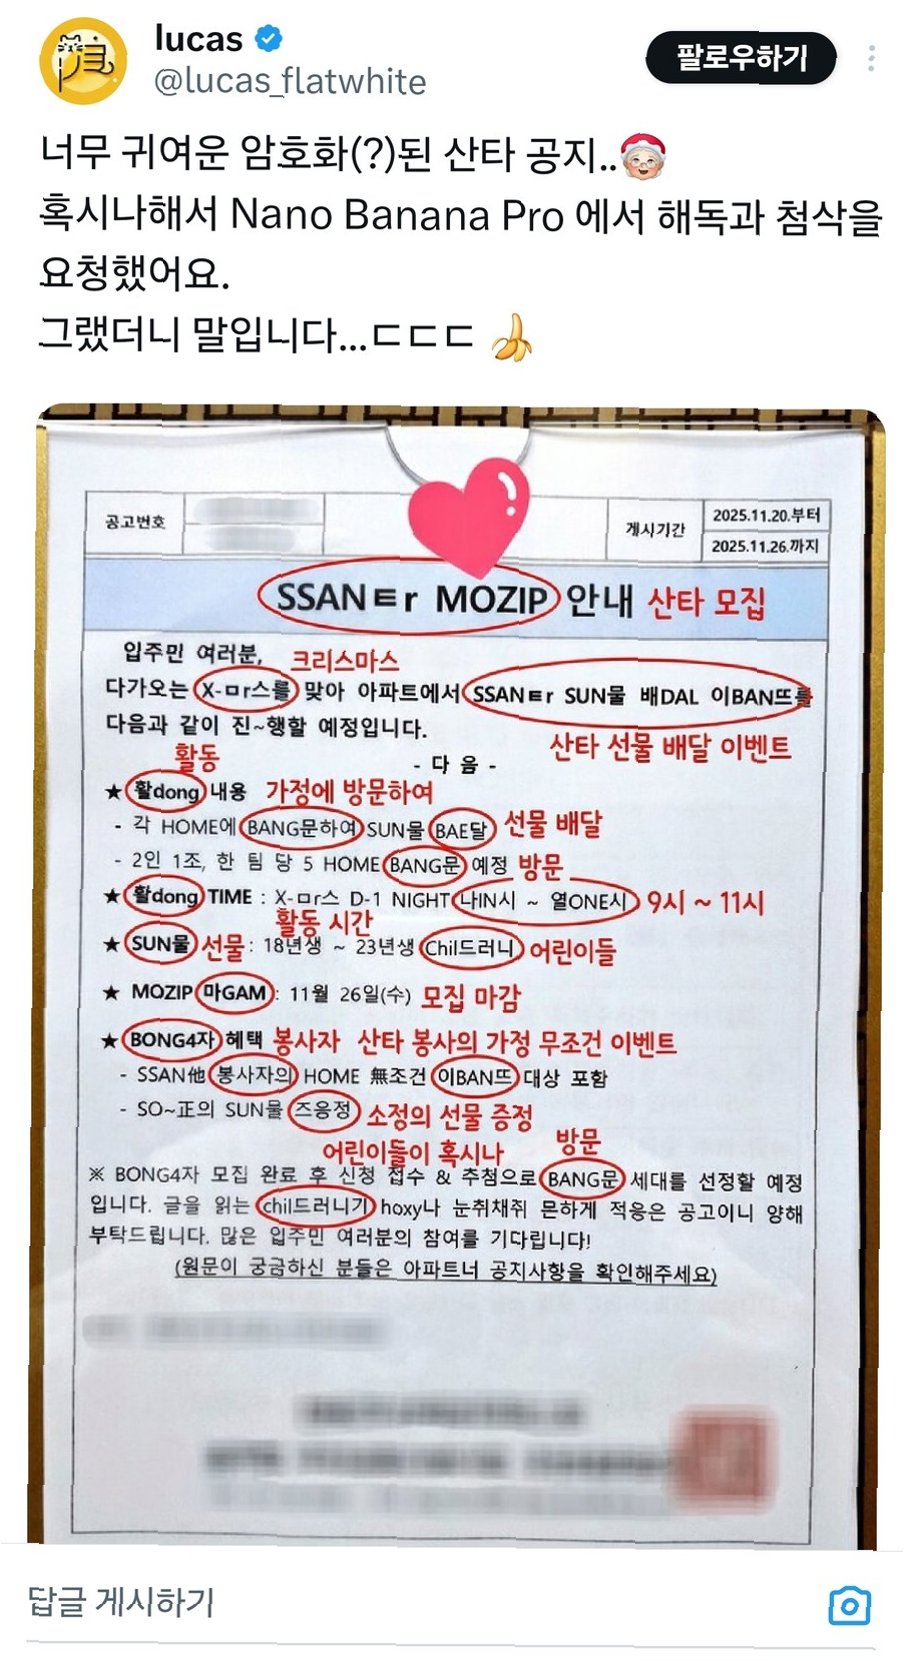 lucas
@lucas_flatwhite
팔로우하기
너무 귀여운 암호화(?)된 산타 공지..
혹시나해서 Nano Banana Pro 에서 해독과 첨삭을
요청했어요.
그랬더니 말입니다...ㄷㄷㄷ
공고번호
게시기간
2025.11.20.부터
2025.11.26.까지
SSANㅌr MOZIP 안내 산타 모집
입주민 여러분, 크리스마스
다가오는 X-ㅁr스를 맞아 아파트에서 SSANㅌr SUN물 배DAL 이BAN뜨를
다음과 같이 진~행할 예정입니다.
산타 선물 배달 이벤트
활동
- 다 음 -
★ 활dong 내용 가정에 방문하여
- 각 HOME에 BANG문하여 SUN물 BAE달 선물 배달
- 2인 1조, 한 팀 당 5 HOME BANG문 예정 방문
★ 활dong TIME : X-ㅁr스 D-1 NIGHT 나IN시 ~ 열ONE시 9시 ~ 11시
활동 시간
★ SUN물 선물 : 18년생 ~ 23년생 Chil드러니 어린이들
★ MOZIP 마GAM : 11월 26일(수) 모집 마감
★ BONG4자 혜택 봉사자 산타 봉사의 가정 무조건 이벤트
- SSAN他 봉사자의 HOME 無조건 이BAN뜨 대상 포함
- SO~正의 SUN물 즈응정 소정의 선물 증정
어린이들이 혹시나 방문
※ BONG4자 모집 완료 후 신청 접수 & 추첨으로 BANG문 세대를 선정할 예정
입니다. 글을 읽는 chil드러니기 hoxy나 눈취채쥐 몬하게 적응은 공고이니 양해
부탁드립니다. 많은 입주민 여러분의 참여를 기다립니다!
(원문이 궁금하신 분들은 아파트너 공지사항을 확인해주세요)
답글 게시하기